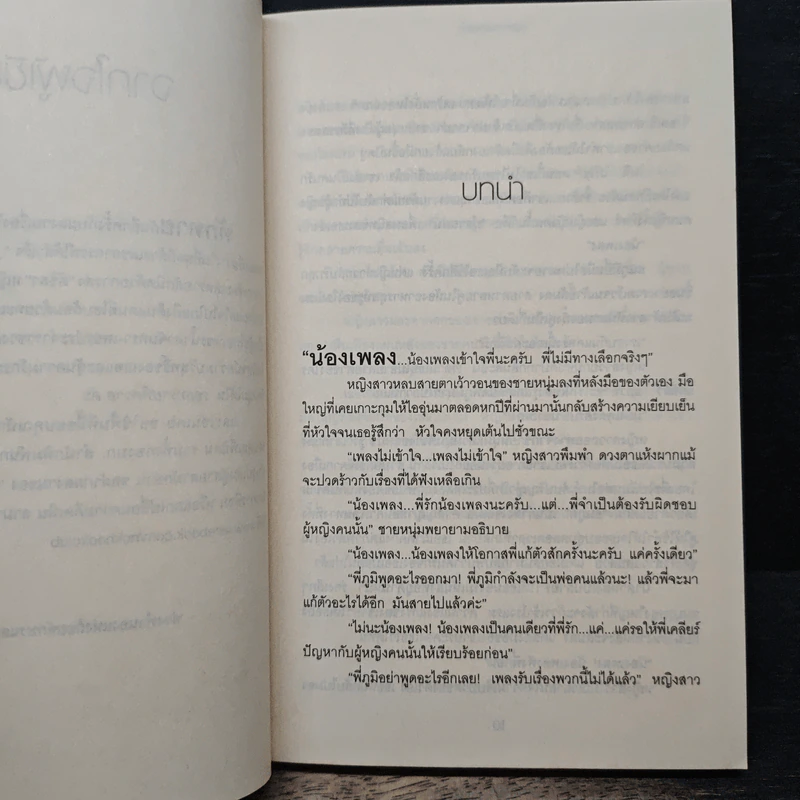 บทนำ
"น้องเพลง...น้องเพลงเข้าใจพี่นะครับ พี่ไม่มีทางเลือกจริงๆ"
หญิงสาวหลบสายตาเว้าวอนของชายหนุ่มลงที่หลังมือของตัวเอง มือ
ใหญ่ที่เคยเกาะกุมให้ไออุ่นมาตลอดหกปีที่ผ่านมานั้นกลับสร้างความเยียบเย็น
ที่หัวใจจนเธอรู้สึกว่า หัวใจคงหยุดเต้นไปชั่วขณะ
"เพลงไม่เข้าใจ...เพลงไม่เข้าใจ" หญิงสาวพึมพำ ดวงตาแห้งผากแม้
จะปวดร้าวกับเรื่องที่ได้ฟังเหลือเกิน
"น้องเพลง...พี่รักน้องเพลงนะครับ...แต่...พี่จำเป็นต้องรับผิดชอบ
ผู้หญิงคนนั้น" ชายหนุ่มพยายามอธิบาย
"น้องเพลง...น้องเพลงให้โอกาสพี่แก้ตัวสักครั้งนะครับ แค่ครั้งเดียว"
"พี่ภูมิพูดอะไรออกมา! พี่ภูมิกำลังจะเป็นพ่อคนแล้วนะ! แล้วพี่จะมา
แก้ตัวอะไรได้อีก มันสายไปแล้วค่ะ"
"ไม่นะน้องเพลง! น้องเพลงเป็นคนเดียวที่พี่รัก...แค่...แค่รอให้พี่เคลียร์
ปัญหากับผู้หญิงคนนั้นให้เรียบร้อยก่อน"
"พี่ภูมิอย่าพูดอะไรอีกเลย! เพลงรับเรื่องพวกนี้ไม่ได้แล้ว" หญิงสาว